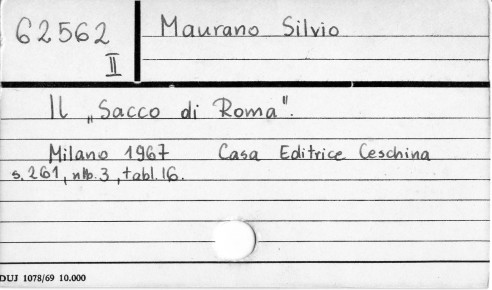 62562
II
Maurano Silvio
Il „Sacco di Roma".
Milano 1967 Casa Editrice Ceschina
s. 261, nlb. 3, tabl. 16.
DUJ 1078/69 10.000